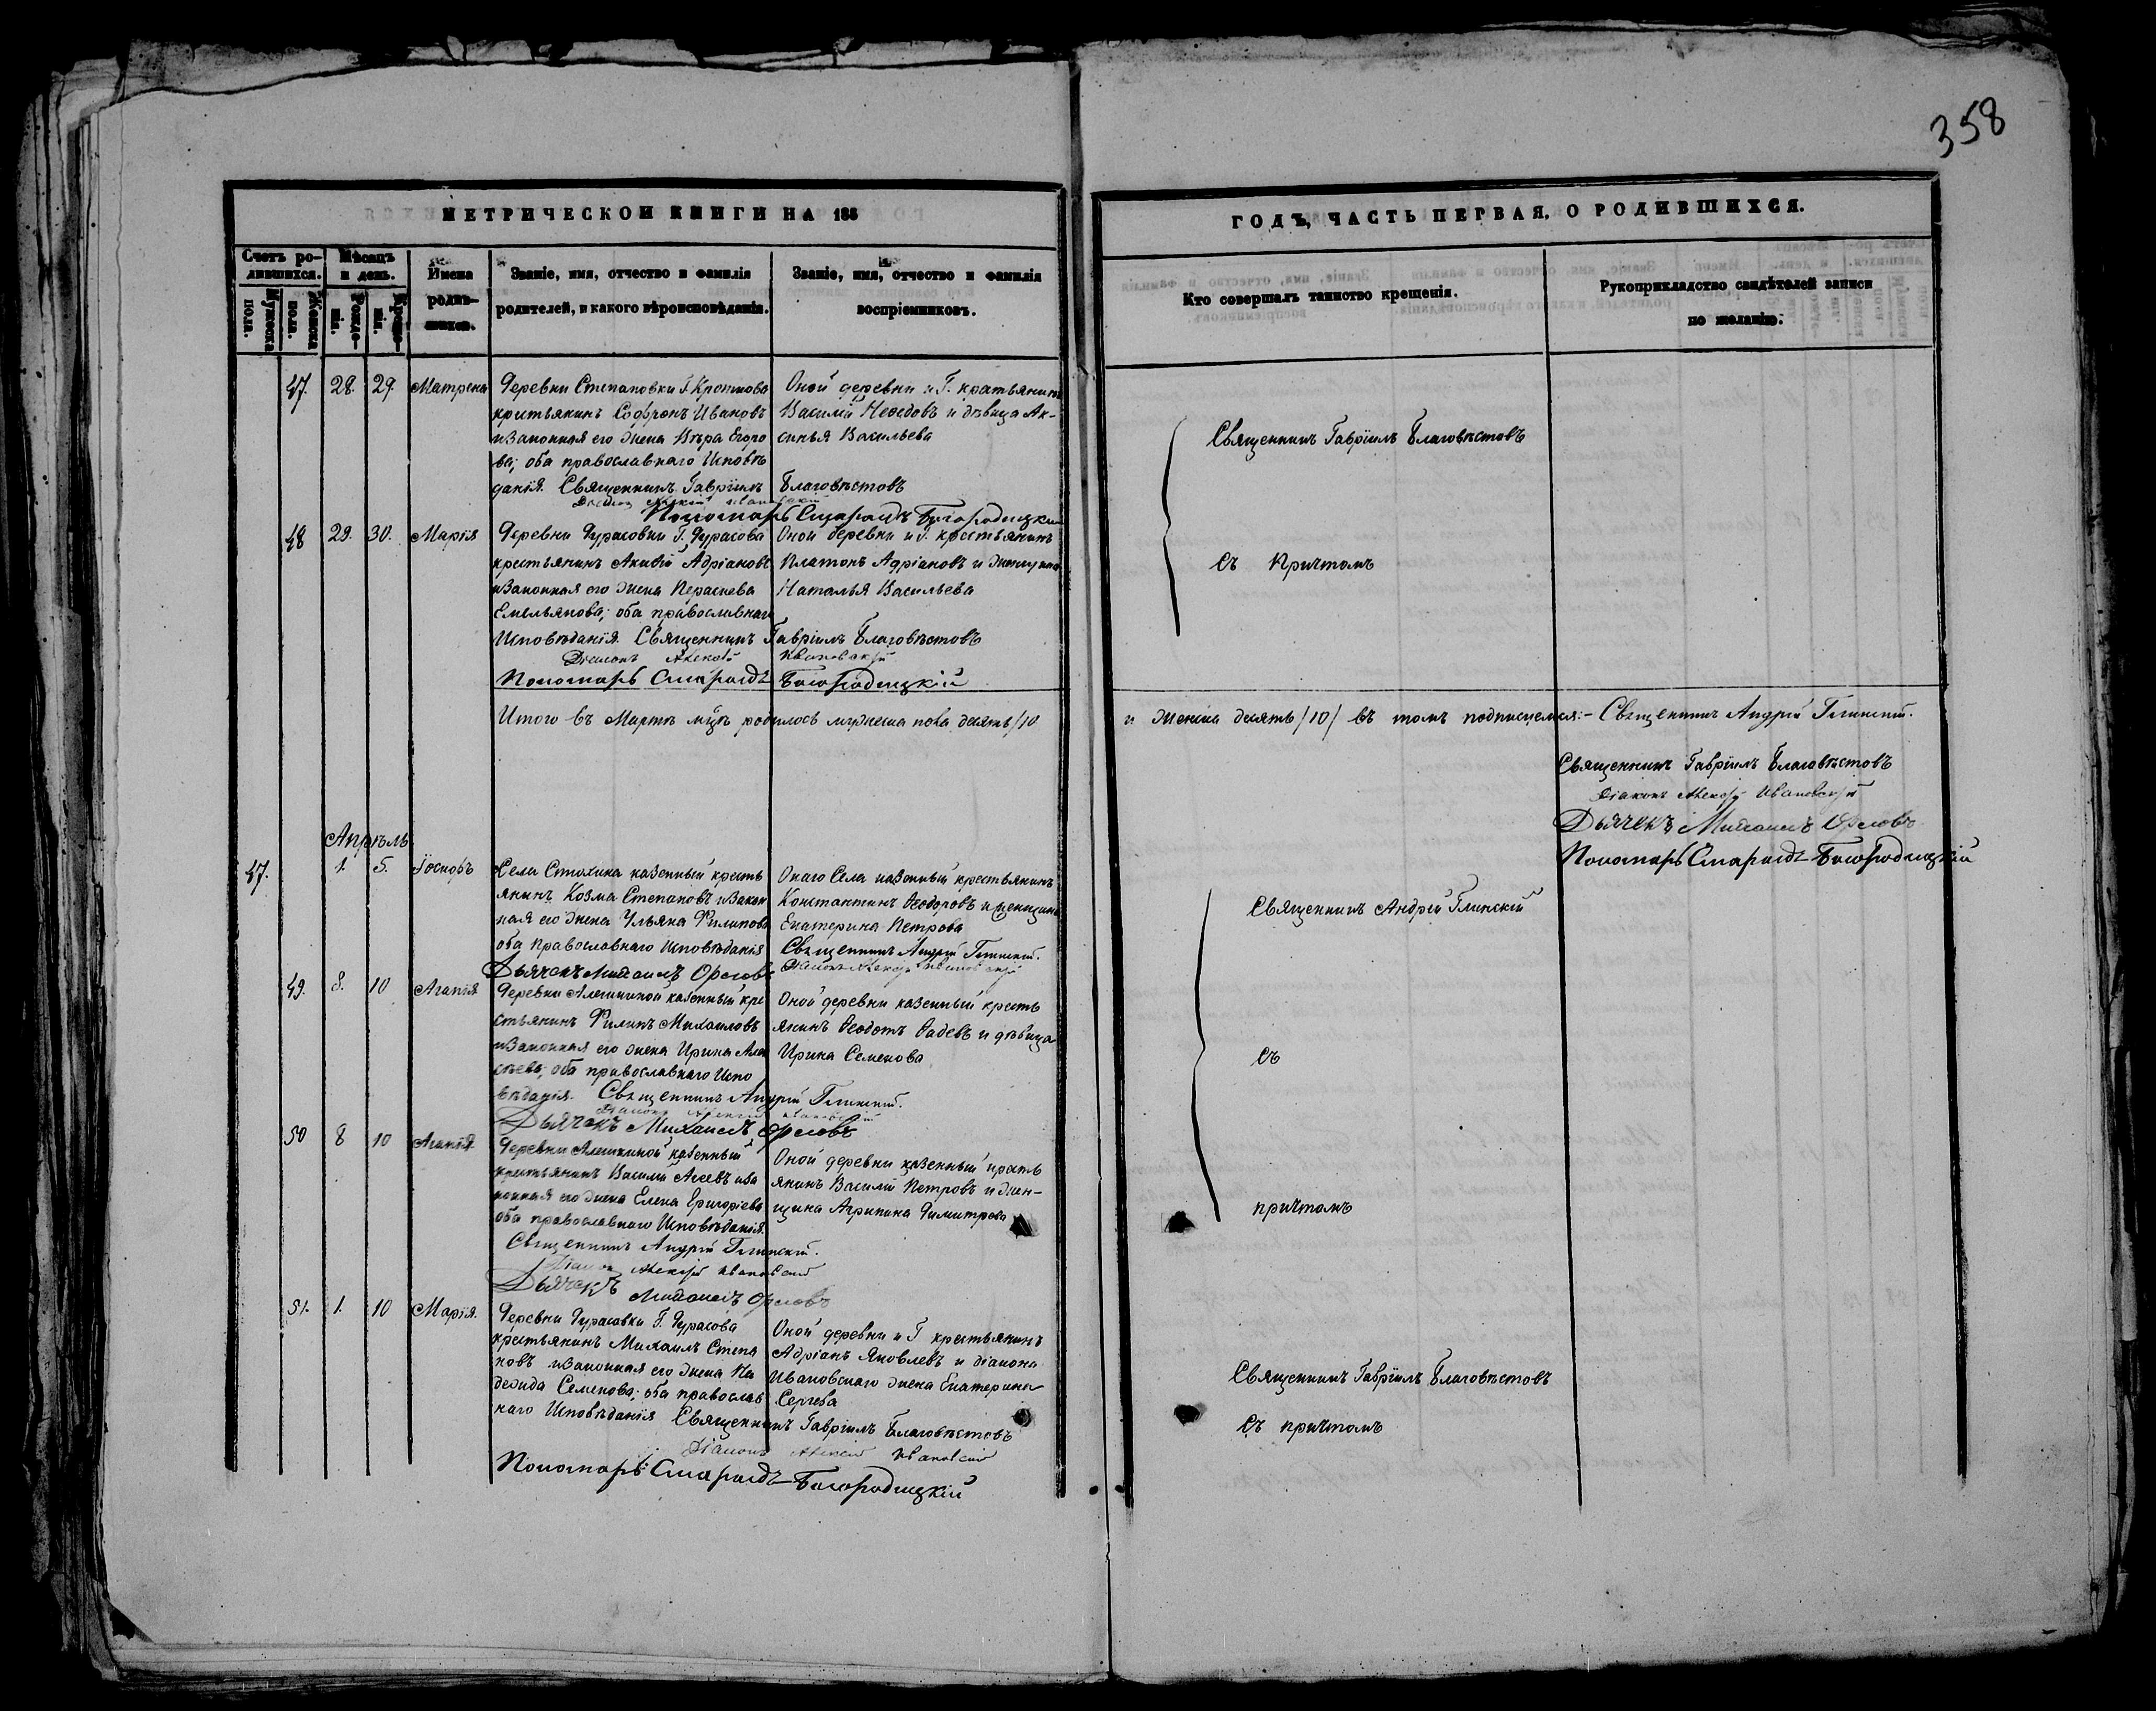 358
МЕТРИЧЕСКОЙ КНИГИ НА 186
ГОДЪ, ЧАСТЬ ПЕРВАЯ, О РОДИВШИХСЯ.
Счетъ ро-
дившихся.
Мужеска
пола.
Женска
пола.
Мѣсяцъ
и день.
Рожде-
нія.
Креще-
нія.
Имена
родив-
шихся.
Званіе, имя, отчество и фамилія
родителей, и какого вѣроисповѣданія.
Званіе, имя, отчество и фамилія
воспріемниковъ.
Кто совершалъ таинство крещенія.
Рукоприкладство свидѣтелей записи
по желанію.
47. 28. 29. Матрена
Деревни Степановки Г. Кроткова
крестьянинъ Софронъ Ивановъ
и законная его жена Вѣра Егоро
ва; оба православнаго Исповѣ
данія. Священникъ Гавріилъ Благовѣстовъ
Оной деревни и Г. крестьянинъ
Василій Неѳедовъ и дѣвица Ак-
синья Васильева
Діаконъ Алексій Ивановскій
Пономарь Смарагдъ Богородицкій
Священникъ Гавріилъ Благовѣстовъ
48 29. 30. Марія
Деревни Дурасовки Г. Дурасова
крестьянинъ Адріановъ
и законная его жена Параскева
Емельянова; оба православнаго
Исповѣданія. Священникъ Гавріилъ Благовѣстовъ
Оной деревни и Г. крестьянинъ
Платонъ Адріановъ и женщина
Наталья Васильева
Діаконъ Алексій Ивановскій
Пономарь Смарагдъ Богородицкій
съ Причтомъ
Итого въ Мартѣ мцѣ родилось мужеска пола десять /10
и женска десять /10/ въ томъ подписуемся:- Священникъ Андрей Глинскій.
Священникъ Гавріилъ Благовѣстовъ
Діаконъ Алексѣй Ивановскій
Дьячекъ Михаилъ Орловъ
Пономарь Смарагдъ Богородицкій
Апрѣль
47. 1. 5. Іосифъ
Села Столхина казенный кресть
янинъ Козма Степановъ и закон
ная его жена Ульяна Филипова
оба Православнаго Исповѣданія
Онаго Села казенный крестьянинъ
Константинъ Ѳеодоровъ и женщина
Екатерина Петрова
Священникъ Андрей Глинскій.
Дьячекъ Михаилъ Орловъ
Діаконъ Алексѣй Ивановскій
Священникъ Андрей Глинскій
49. 8. 10 Агапія
Деревни Алешкиной казенный кре
стьянинъ Филипъ Михаиловъ
и законная его жена Ирина Але
ксѣева; оба православнаго Испо
вѣданія. Священникъ Андрей Глинскій.
Оной деревни казенный кресть
янинъ Ѳеодотъ Ѳадѣевъ и дѣвица
Ирина Семенова
Діаконъ Алексій Ивановскій
Дьячекъ Михаилъ Орловъ
съ
50 8 10 Агапія
Деревни Алешкиной казенный
крестьянинъ Василій и за
конная его жена Елена Григорьева
оба православнаго Исповѣданія.
Священникъ Андрей Глинскій.
Оной деревни казенный кресть
янинъ Василій Петровъ и жен-
щина Агрипина Димитрева
Діаконъ Алексѣй Ивановскій
Дьячекъ Михаилъ Орловъ
причтомъ
51. 1. 10 Марія.
Деревни Дурасовки Г. Дурасова
крестьянинъ Михаилъ Степа
новъ и законная его жена На
дежда Семенова; оба православ
наго Исповѣданія Священникъ Гавріилъ Благовѣстовъ
Оной деревни и Г крестьянинъ
Адріанъ Яковлевъ и діакона
Ивановскаго жена Екатерина
Сергѣева
Діаконъ Алексій Ивановскій
Пономарь Смарагдъ Богородицкій
Священникъ Гавріилъ Благовѣстовъ
съ причтомъ